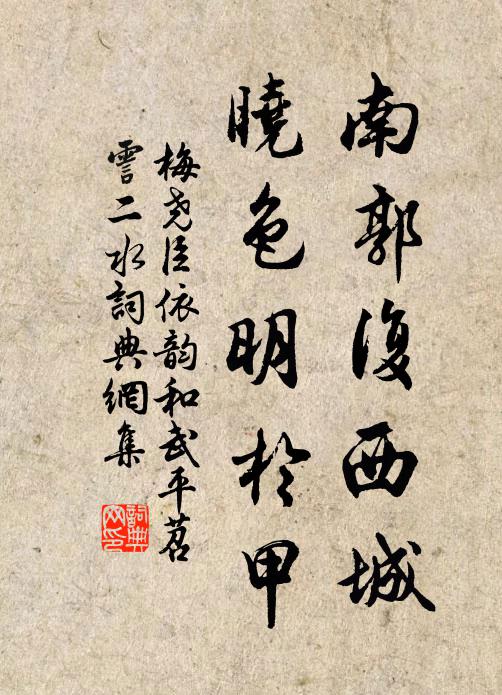 南郭復西城
曉色明於甲
梅堯臣依韵和武平苕
霅二水詞典網集
詞典
网印